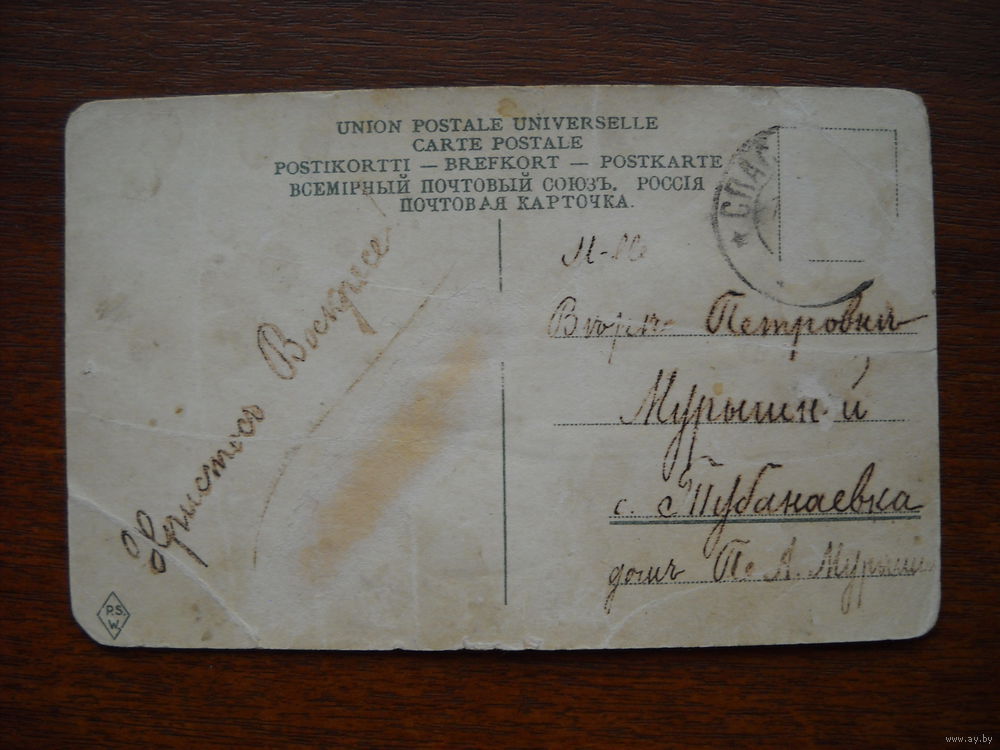 UNION POSTALE UNIVERSELLE
CARTE POSTALE
POSTIKORTTI — BREFKORT — POSTKARTE
ВСЕМІРНЫЙ ПОЧТОВЫЙ СОЮЗЪ. РОССІЯ
ПОЧТОВАЯ КАРТОЧКА.
Христосъ Воскресе
М-lle
Петровнѣ
Мурышн-й
с. Тубанаевка
домъ П. А. Мурыш
★ СПАС
P.S.
W.
www.ay.by